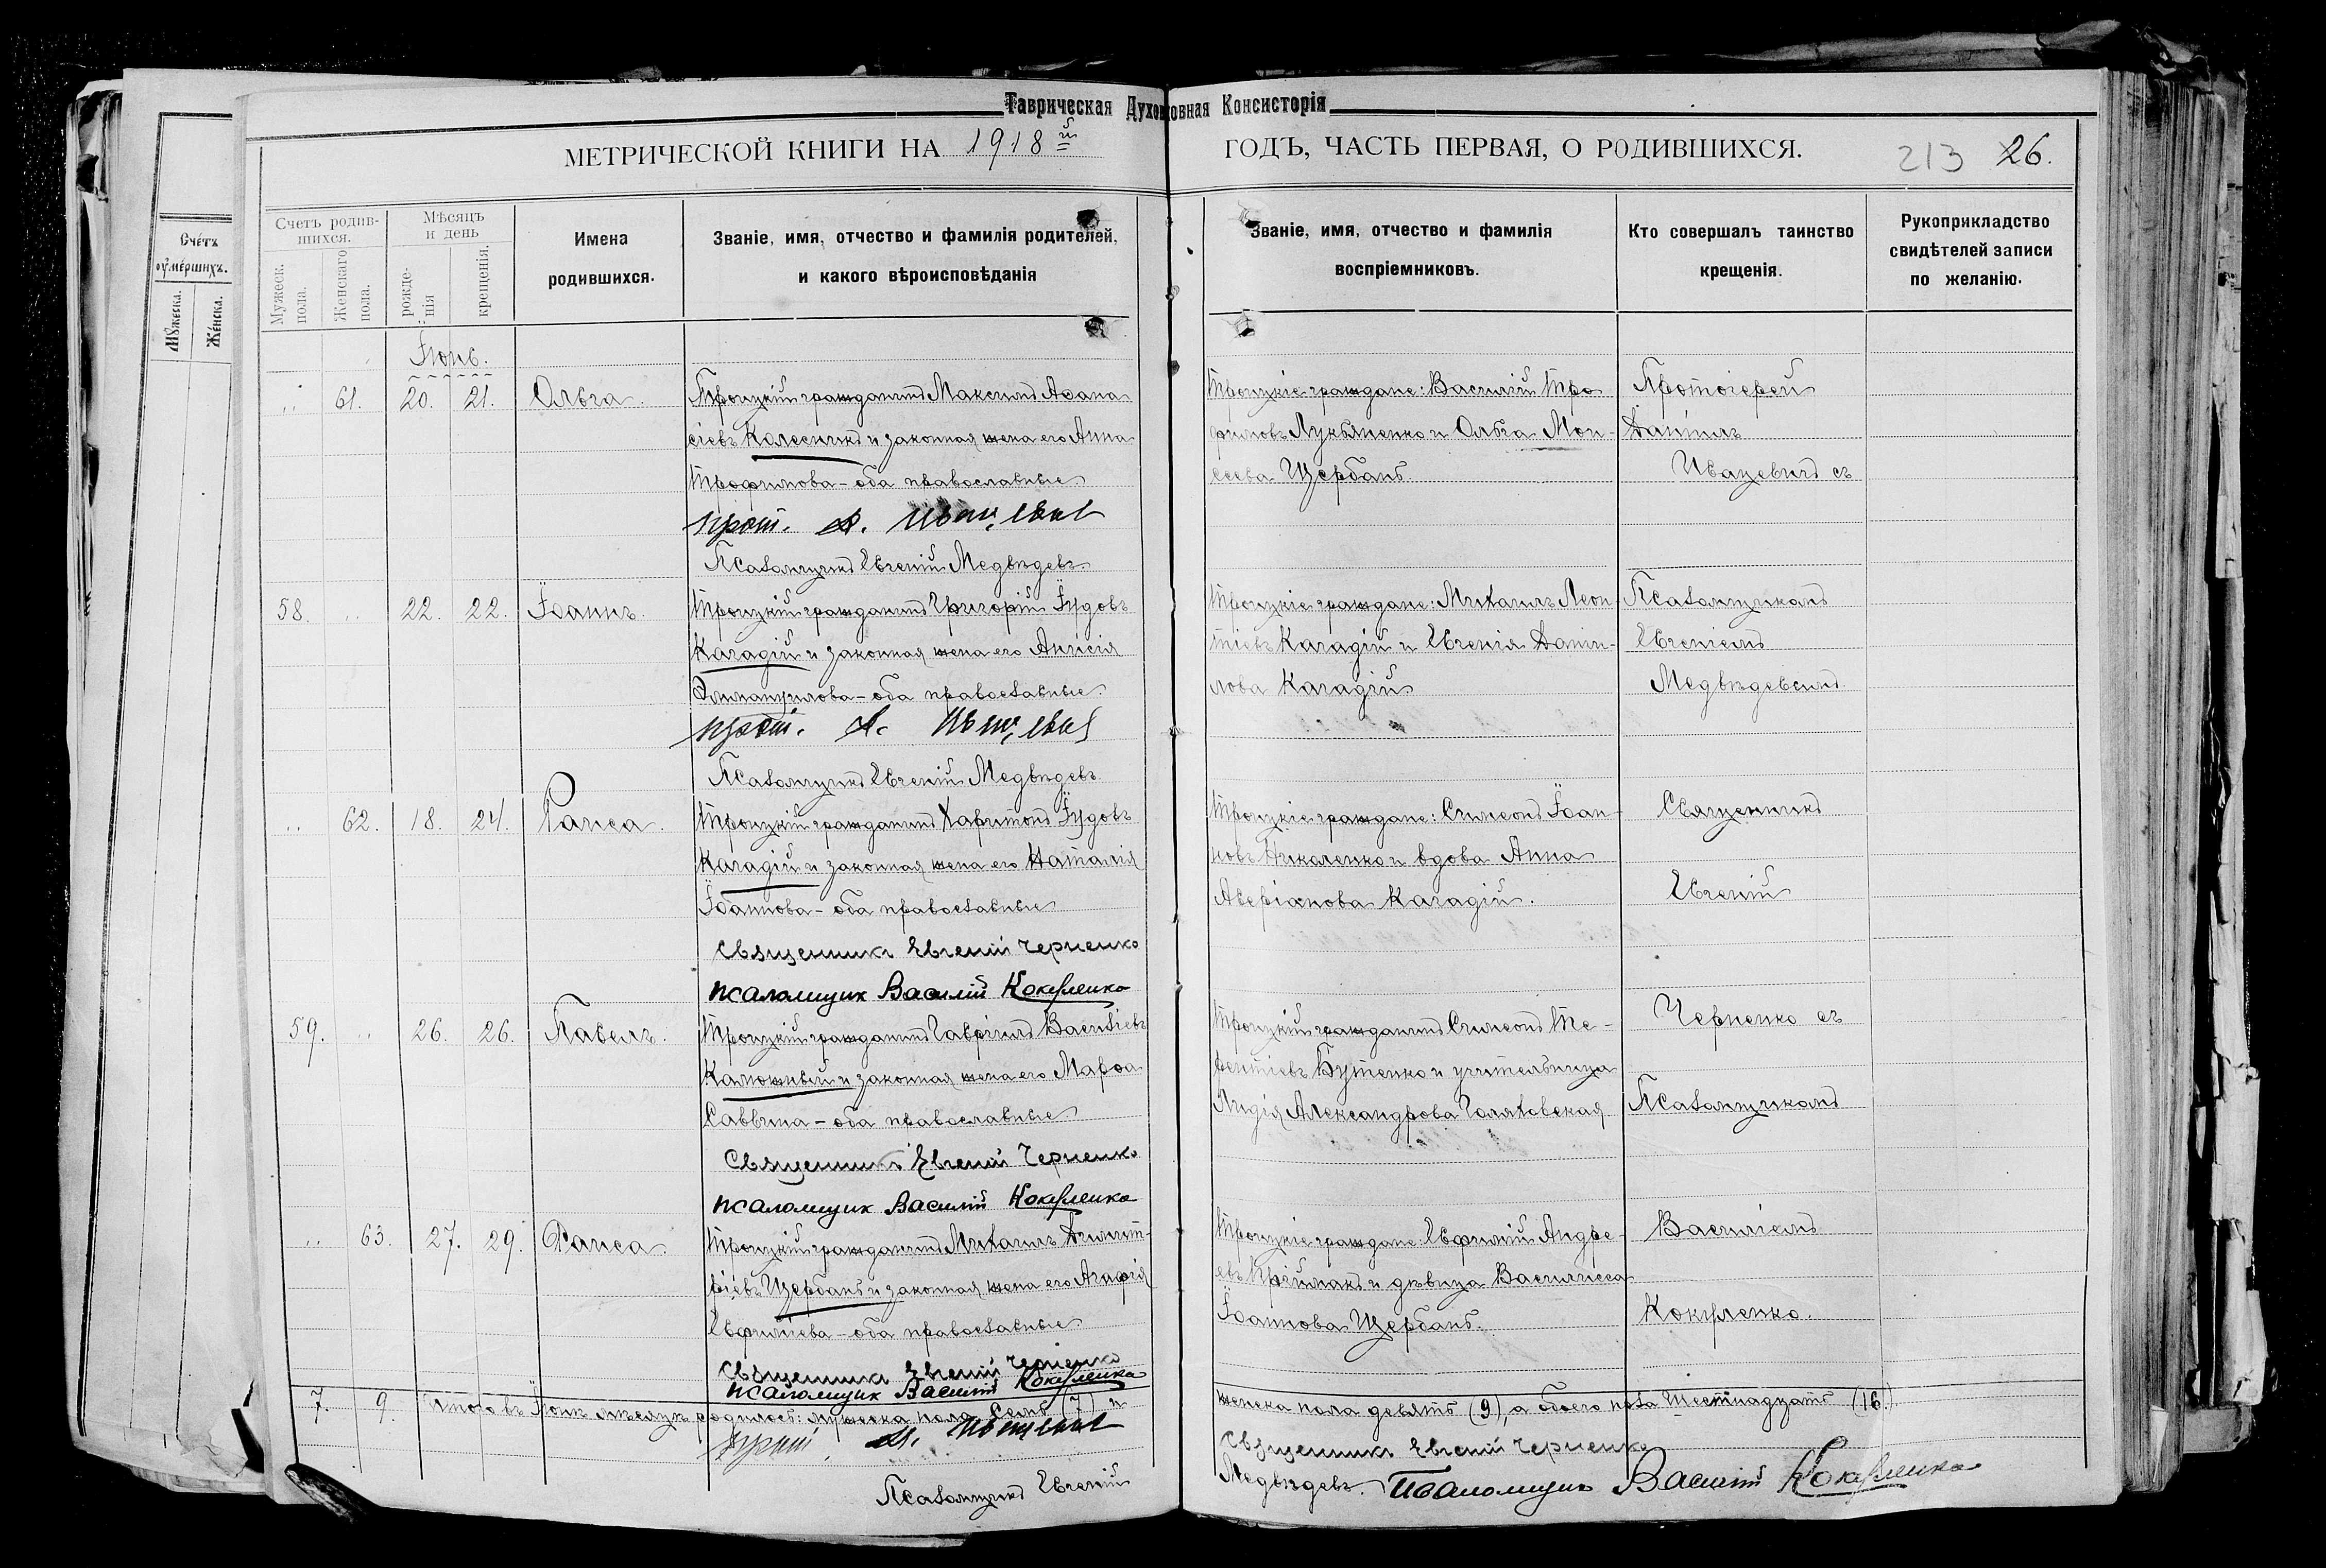 Таврическая Духовная Консисторія
МЕТРИЧЕСКОЙ КНИГИ НА 1918й ГОДЪ, ЧАСТЬ ПЕРВАЯ, О РОДИВШИХСЯ.
213 26.
Счетъ умершихъ.
Мужеска.
Женска.
Счетъ родив-
шихся.
Мужеск. пола.
Женскаго пола.
Мѣсяцъ
и день
рожде-
нія
крещенія.
Имена
родившихся.
Званіе, имя, отчество и фамилія родителей,
и какого вѣроисповѣданія
Званіе, имя, отчество и фамилія
воспріемниковъ.
Кто совершалъ таинство
крещенія.
Рукоприкладство
свидѣтелей записи
по желанію.
Іюнь.
.. 61. 20. 21. Ольга.
Троицкій гражданинъ Максимъ Аѳана
сіевъ Колесникъ и законная жена его Анна
Трофимова – оба православные
прот. Д. Иваницевич
Псаломщикъ Евгеній Медвѣдевъ
Троицкіе граждане: Василій Тро
фимовъ Лукьяненко и Ольга Мои-
сеева Щербань.
Протоіерей
Даніилъ
Иваницевичъ съ
58. .. 22. 22. Іоаннъ.
Троицкій гражданинъ Григорій Іудовъ
Карагій и законная жена его Анисія
оба православные
прот. Д.
Псаломщикъ Евгеній Медвѣдевъ
Троицкіе граждане: Михаилъ Леон-
тіевъ Карагій и Евгенія Дани-
лова Карагій
Псаломщикомъ
Евгеніемъ
Медвѣдевымъ
.. 62. 18. 24. Раиса
Троицкій гражданинъ Харитонъ Іудовъ
Карагій и законная жена его Наталія
Іоаннова – оба православные
Священникъ Евгеній Черненко
псаломщик Василій Кокуленко
Троицкіе граждане: Симеонъ Іоан-
новъ Николенко и вдова Анна
Аверіанова Карагій.
Священникъ
Евгеній
59. .. 26. 26. Павелъ.
Троицкій гражданинъ Гавріилъ Васильевъ
Калюжный и законная жена его Марѳа
Саввина – оба православные
Священникъ Евгеній Черненко
псаломщик Василій Кокуленко
Троицкій гражданинъ Симеонъ Те-
рентіевъ Бутенко и учительница
Лидія Александрова Голяховская
Черненко съ
Псаломщикомъ
.. 63. 27. 29. Раиса
Троицкій гражданинъ Михаилъ Димит-
ріевъ Щербань и законная жена его Агафія
Евфиміева – оба православные
Священникъ Евгеній Черненко
псаломщик Василій Кокуленко
Троицкіе граждане: Евфимій Андре-
евъ Пріймакъ и дѣвица Василисса
Іоаннова Щербань.
Василіемъ
Кокуленко.
7. 9. Итого въ Іюнѣ мѣсяцѣ родилось: мужеска пола семь (7) и женска пола девять (9), а обоего пола шестнадцать (16.)
прот. Д. Священникъ Евгеній Черненко
Псаломщикъ Евгеній Медвѣдевъ. Псаломщик Василій Кокуленко